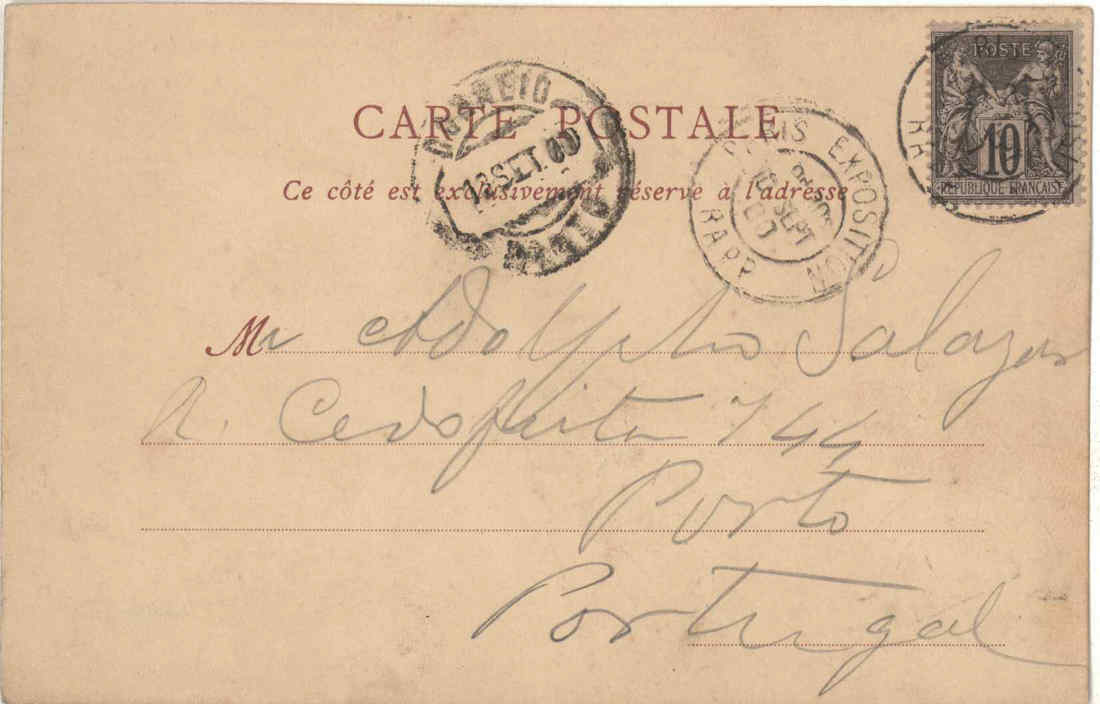 CARTE POSTALE
Ce côté est exclusivement réservé à l'adresse
CORREIO
SET. 00
PORTO
PARIS EXPOSITION
SEPT
00
RAPP
POSTE
10
REPUBLIQUE FRANÇAISE
Mr Adolpho Salazar
R. Cedofeita 144
Porto
Portugal